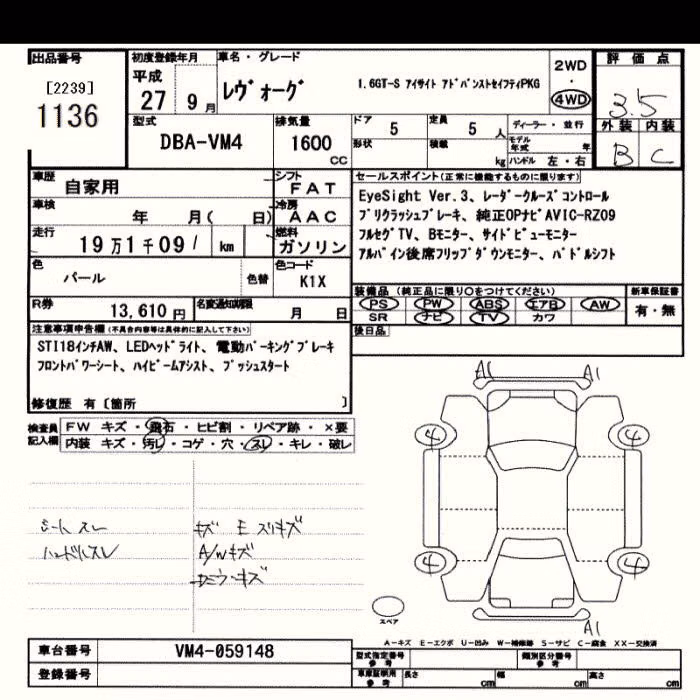 出品番号 初度登録年月 車名・グレード 2WD 評価点
[2239] 平成 レヴォーグ 1.6GT-S アイサイト アドバンストセイフティPKG ・
1136 27 9月 4WD 3.5
型式 排気量 ドア 5 定員 5人 ディーラー・並行 外装 内装
DBA-VM4 1600 CC 形状 積載 kg モデル年式 年 B C
ハンドル 左・右
車歴 自家用 シフト FAT セールスポイント(正常に機能するものに限ります)
車検 年 月( 日) 冷房 AAC EyeSight Ver.3、レーダークルーズコントロール
走行 19万1千091 km 燃料 ガソリン プリクラッシュブレーキ、純正OPナビAVIC-RZ09
フルセグTV、Bモニター、サイドビューモニター
アルパイン後席フリップダウンモニター、パドルシフト
色 パール 色替 色コード K1X
装備品(純正品に限り○をつけてください) 新車保証書
PS PW ABS エアB AW 有・無
SR ナビ TV カワ
R券 13,610円 名変通知期限 月 日
後日品
注意事項申告欄(不具合内容等は具体的に記入して下さい)
STI18インチAW、LEDヘッドライト、電動パーキングブレーキ
フロントパワーシート、ハイビームアシスト、プッシュスタート
修復歴 有〔箇所 〕
検査員記入欄 FW キズ・飛石・ヒビ割・リペア跡・×要
内装 キズ・汚レ・コゲ・穴・スレ・キレ・破レ
シートスレ キズ E スリキズ
ハンドルスレ A/Wキズ
A1 A1
4 4
4 4
A1
スペア
A-キズ E-エクボ U-凹み W-補修跡 S-サビ C-腐食 XX-交換済
車台番号 VM4-059148
登録番号
型式指定番号 参考 類別区分番号 参考
車庫証明用 参考 長さ cm 幅 cm 高さ cm